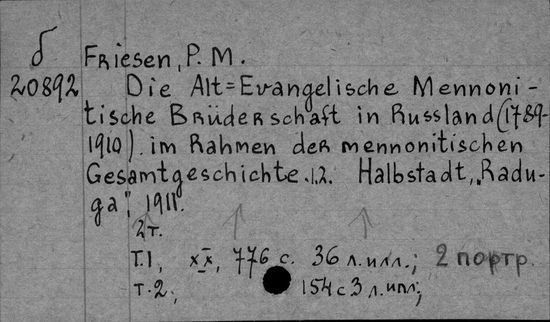 б Friesen, P. M.
20892 Die Alt=Evangelische Mennoni-
tische Brüderschaft in Russland (1789-
1910) im Rahmen der mennonitischen
Gesamtgeschichte. 1.2. Halbstadt, „Radu-
ga", 1911.
2т.
Т.1, XX, 776 с. 36 л. илл.; 2 портр.
т.2; 154 с 3 л. илл;